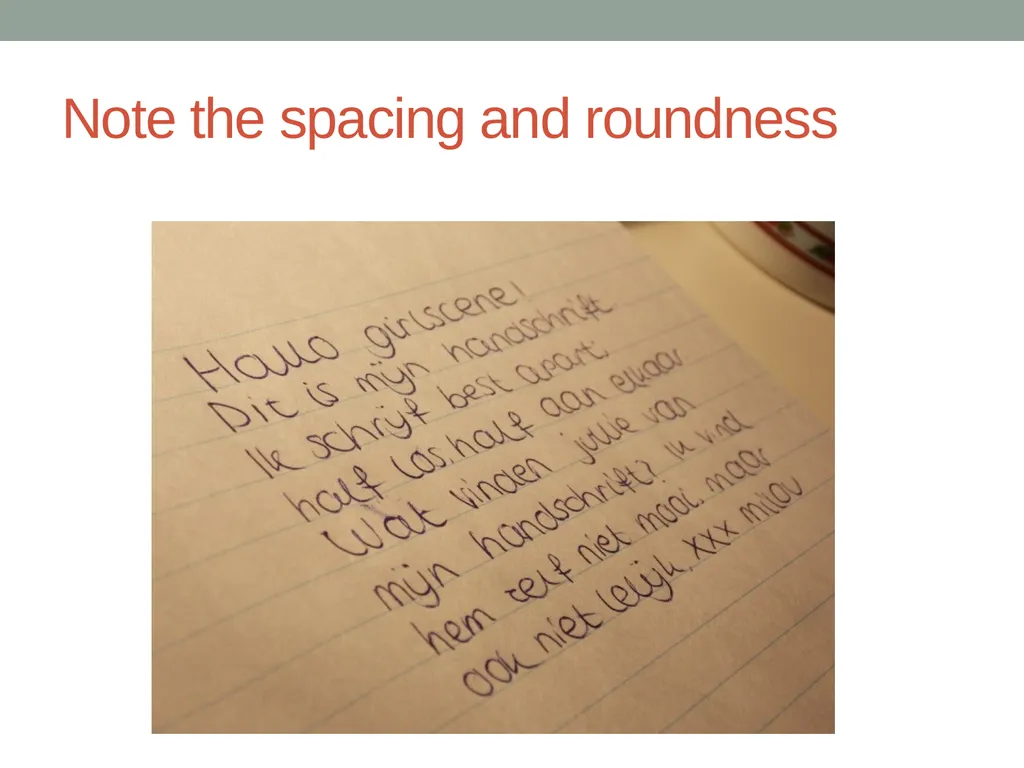 Note the spacing and roundness
Hallo girlscene!
Dit is mijn handschrift
Ik schrijf best apart.
half los, half aan elkaar
Wat vinden jullie van
mijn handschrift? Ik vind
hem zelf niet mooi, maar
ook niet lelijk. xxx milou